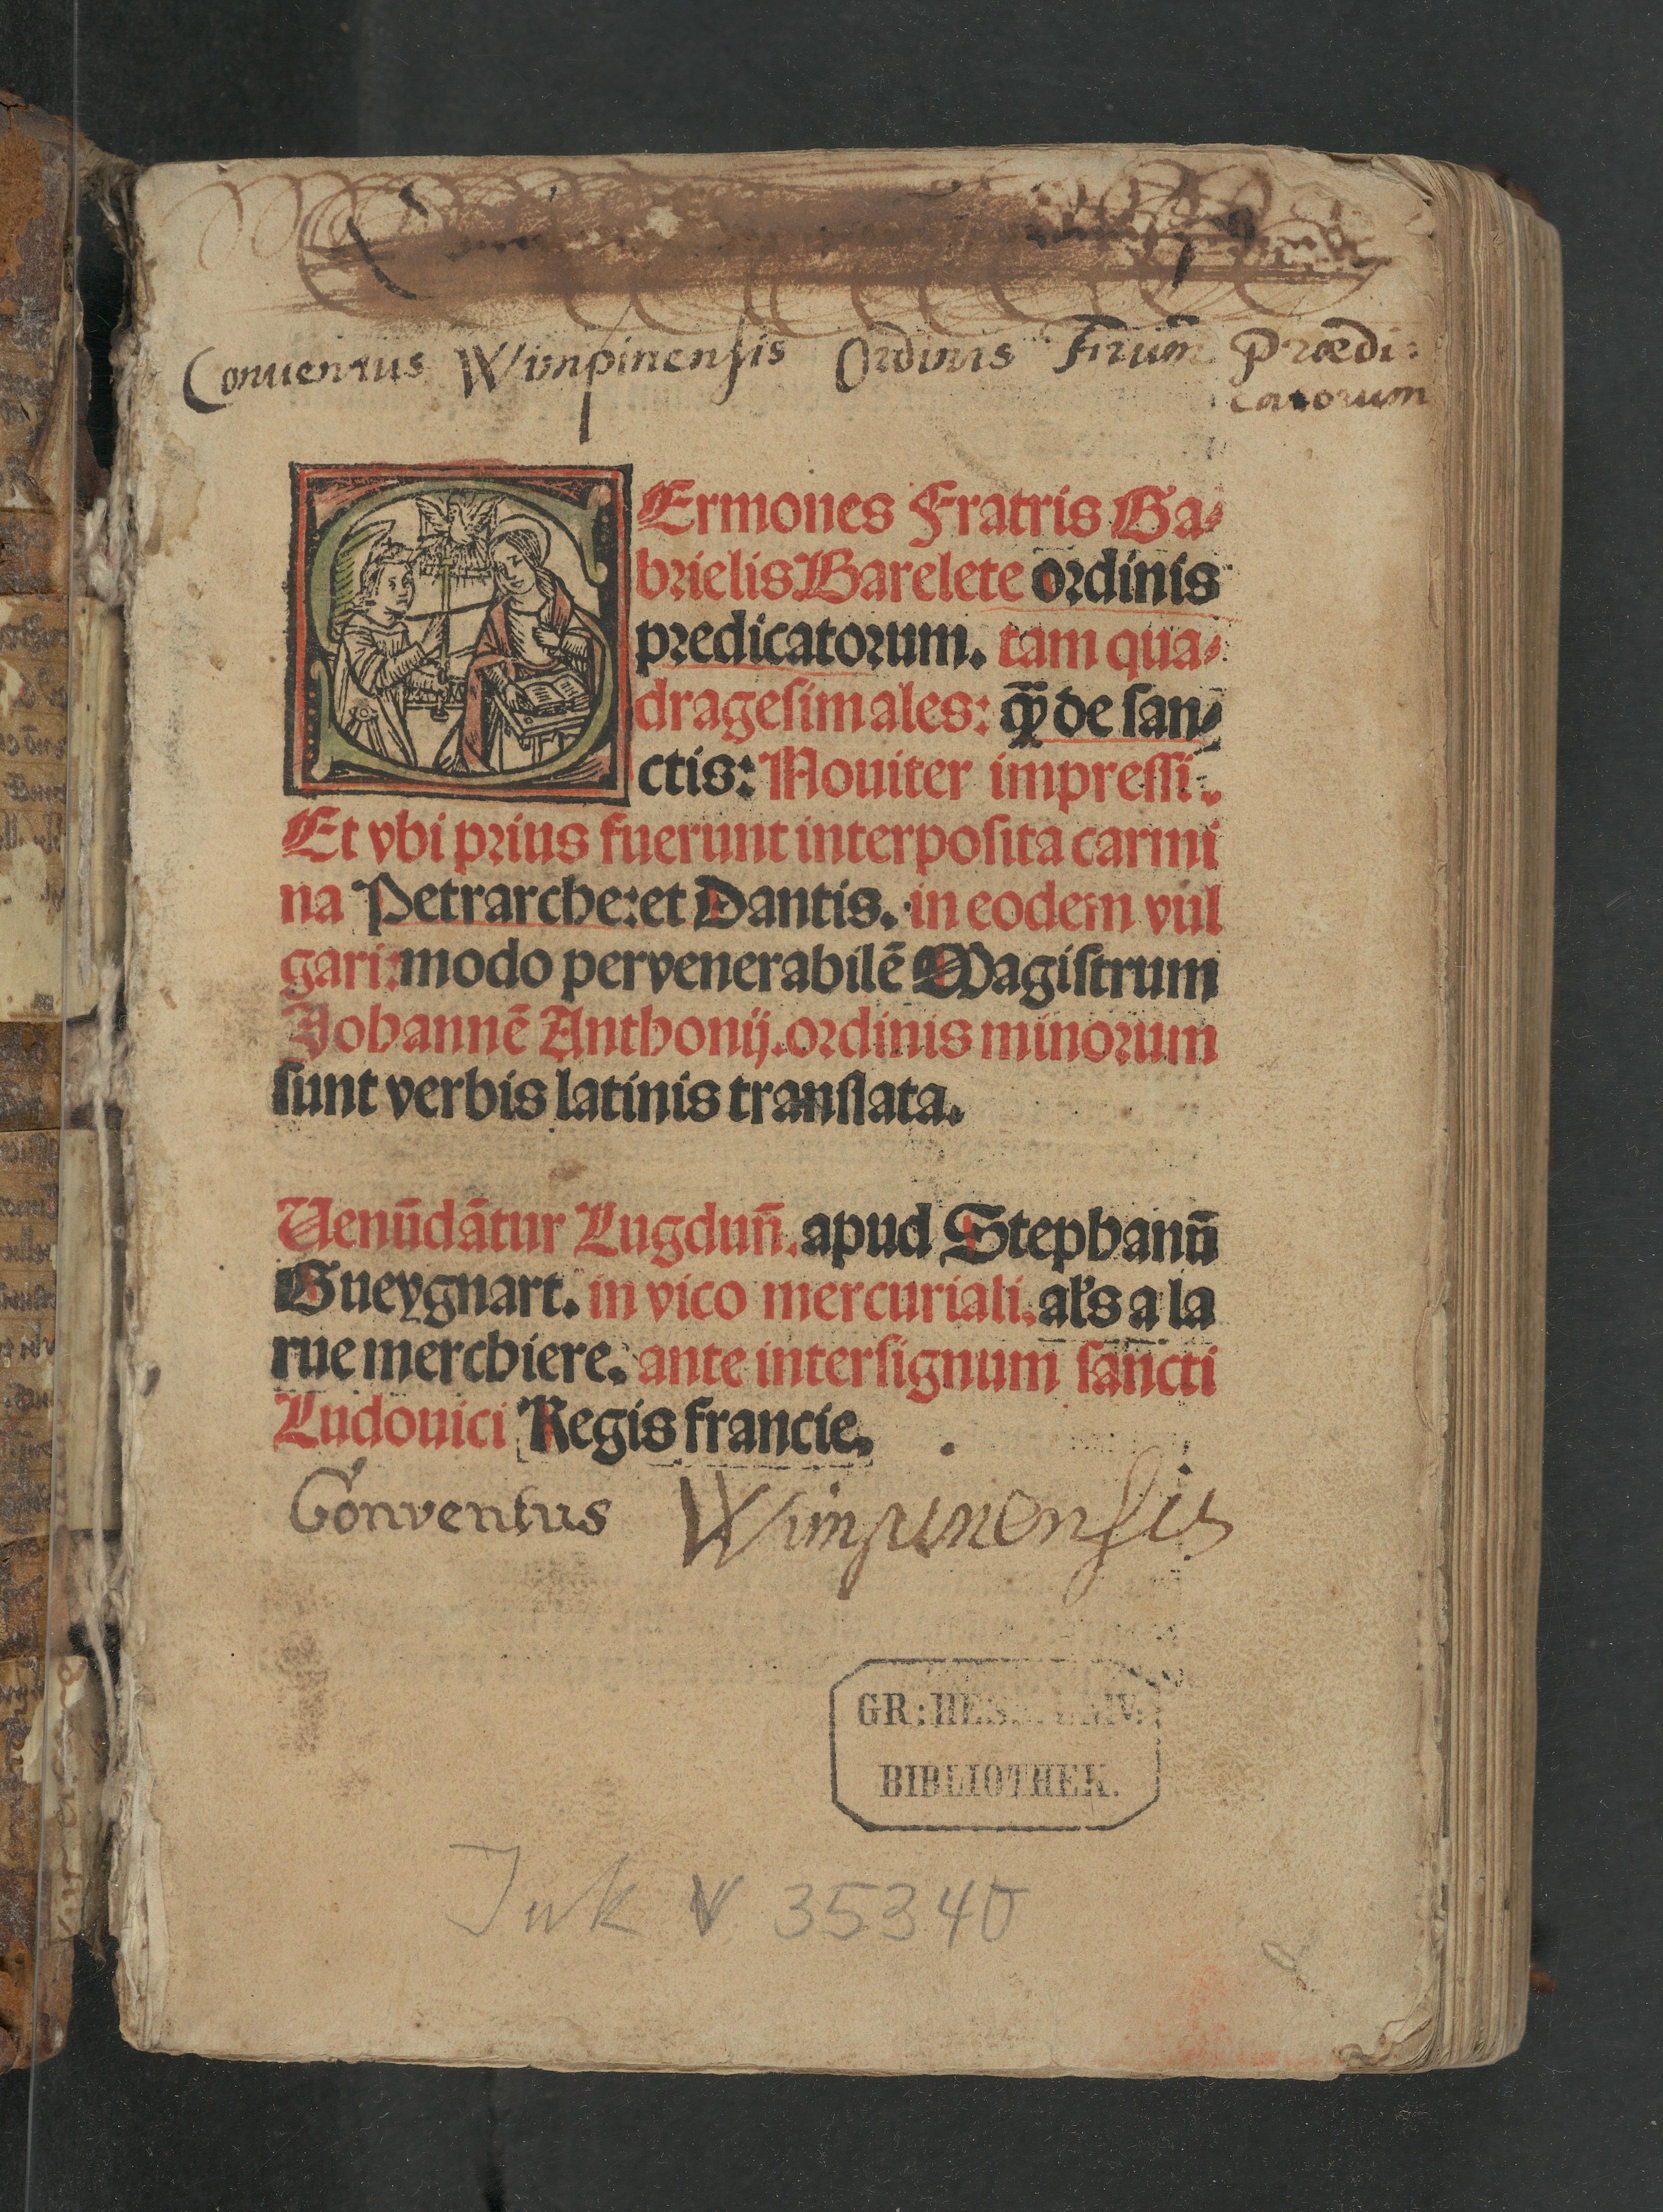 Conuentus Wimpinensis Ordinis Frum̃ Prædi:
catorum
SErmones Fratris Ga⸗
brielis Barelete ordinis
predicatorum. tam qua⸗
dragesimales: ꝙ̃ de san⸗
ctis: Nouiter impressi.
Et vbi prius fuerunt interposita carmi
na Petrarche: et Dantis. in eodem vul
gari: modo per venerabilẽ Magistrum
Johannẽ Anthonij. ordinis minorum
sunt verbis latinis translata.
Uenũdãtur Lugduñ. apud Stephanũ
Gueygnart. in vico mercuriali. als a la
rue merchiere. ante intersignum sancti
Ludouici Regis francie.
Conventus Wimpinensis
GR: HESS. UNIV.
BIBLIOTHEK.
Ink V 35340